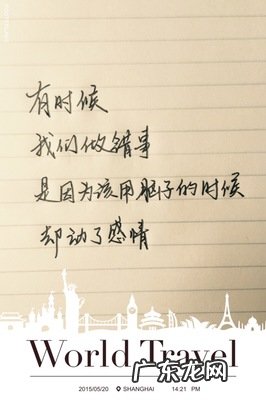 有时候
我们做错事
是因为该用脑子的时候
却动了感情
World Travel
2015/05/20 SHANGHAI 14:21 PM
广东龙网